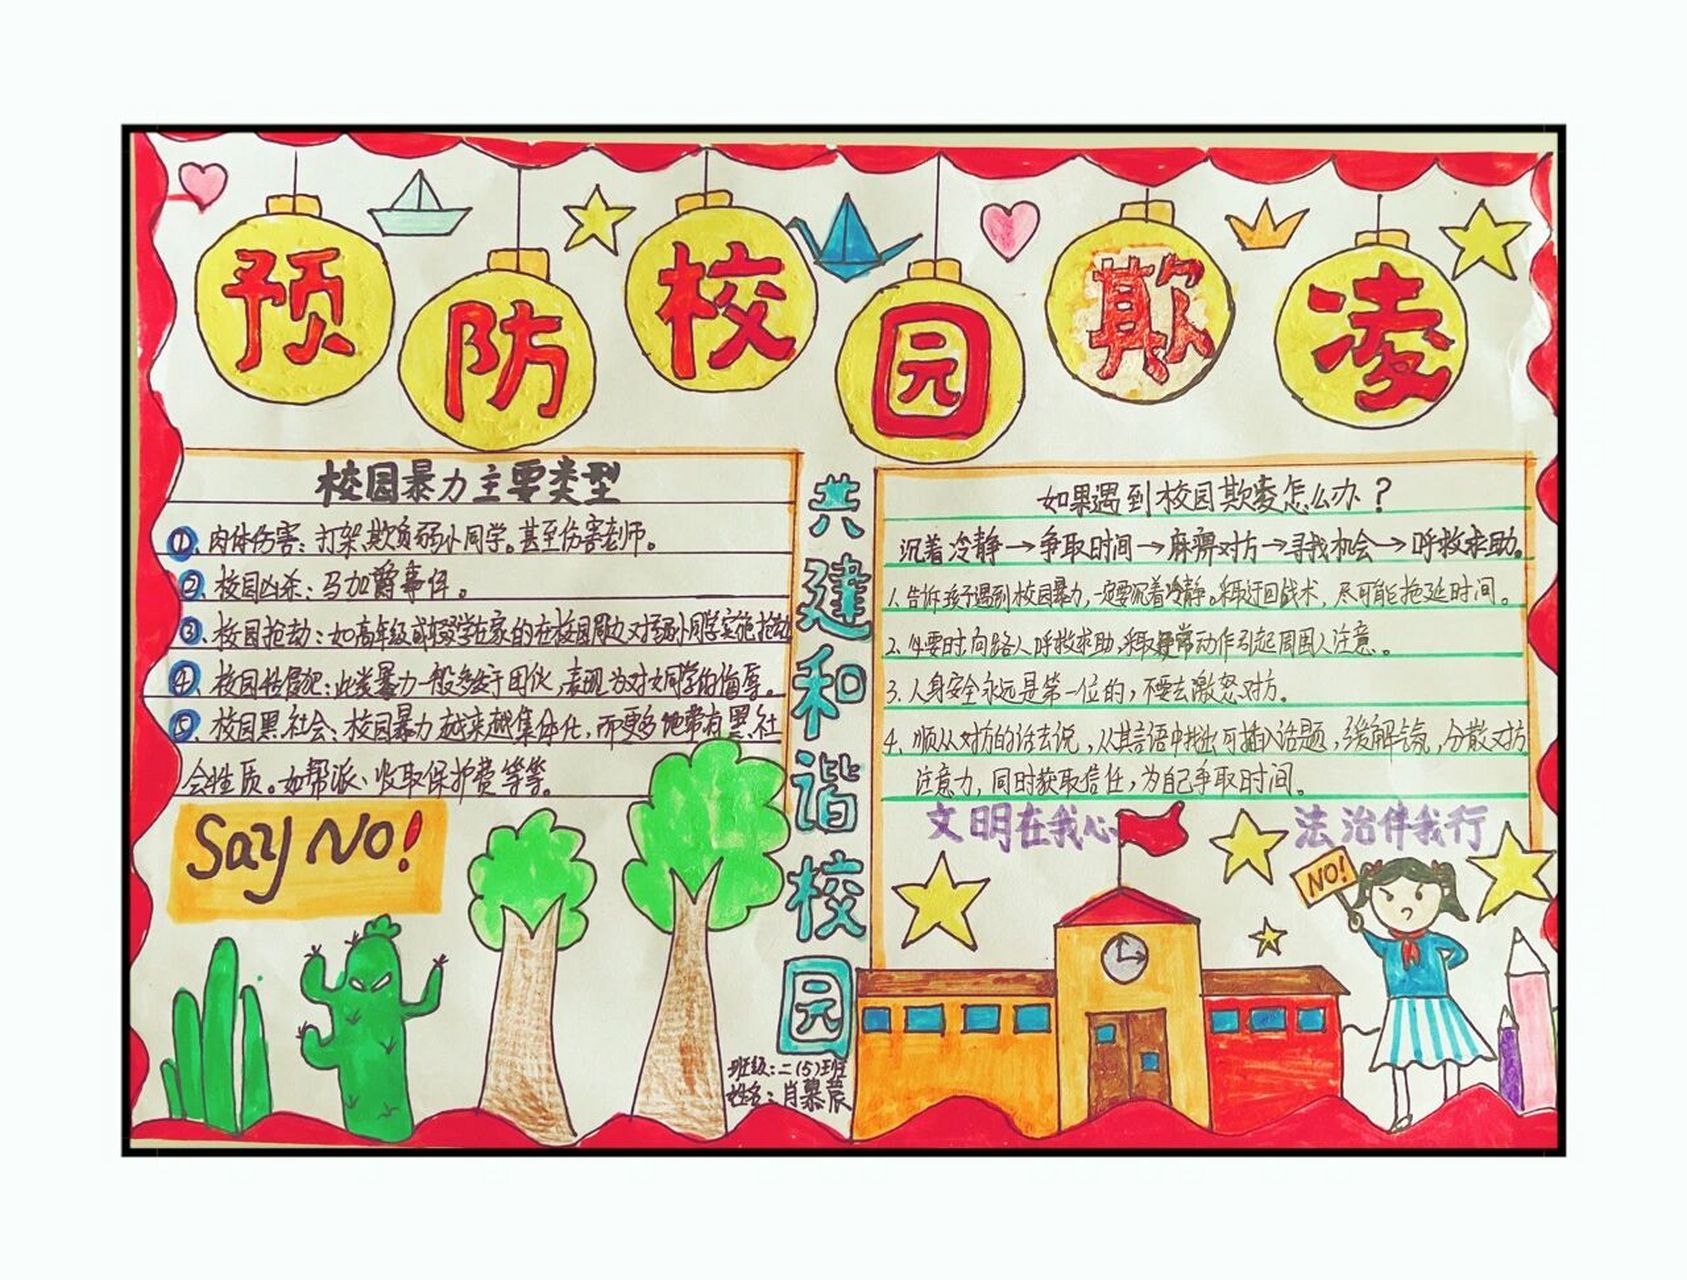 预防校园欺凌
校园暴力主要类型
①、肉体伤害：打架,欺负弱小同学。甚至伤害老师。
②、校园凶杀：马加爵事件。
③、校园抢劫：如高年级或辍学在家的在校园周边对弱小同学实施抢劫
④、校园性侵犯：此类暴力一般多发于团伙,表现为对女同学的侮辱。
⑤、校园黑社会：校园暴力越来越集体化,而更多地带有黑社
会性质。如帮派、收取保护费等等。
Say NO!
共建和谐校园
班级:二(5)班
姓名:肖慕宸
如果遇到校园欺凌怎么办？
沉着冷静→争取时间→麻痹对方→寻找机会→呼救求助。
1、告诉孩子遇到校园暴力,一定要沉着冷静。采取迂回战术,尽可能拖延时间。
2、必要时,向路人呼救求助,采取异常动作引起周围人注意。
3、人身安全永远是第一位的,不要去激怒对方。
4、顺从对方的话去说,从其言语中找出可插入话题,缓解气氛,分散对方
注意力,同时获取信任,为自己争取时间。
文明在我心
法治伴我行
NO!